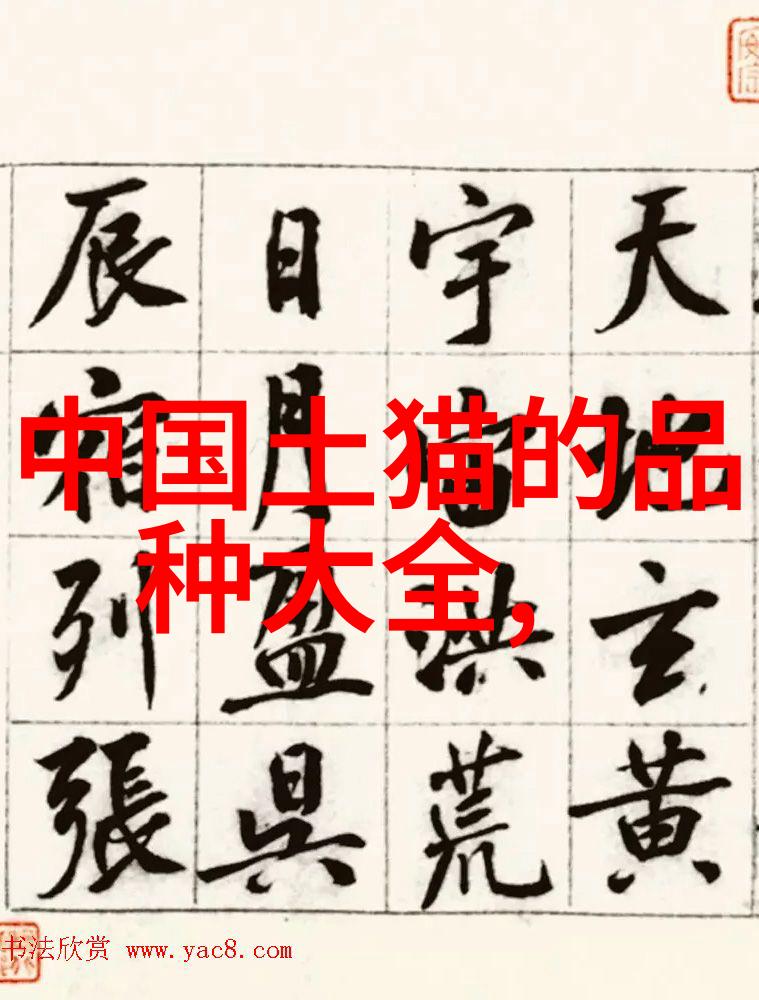 中国土猫的品
种大全,
天地玄黄
宇宙洪荒
日月盈昃
辰宿列張
书法欣赏 www.yac8.com